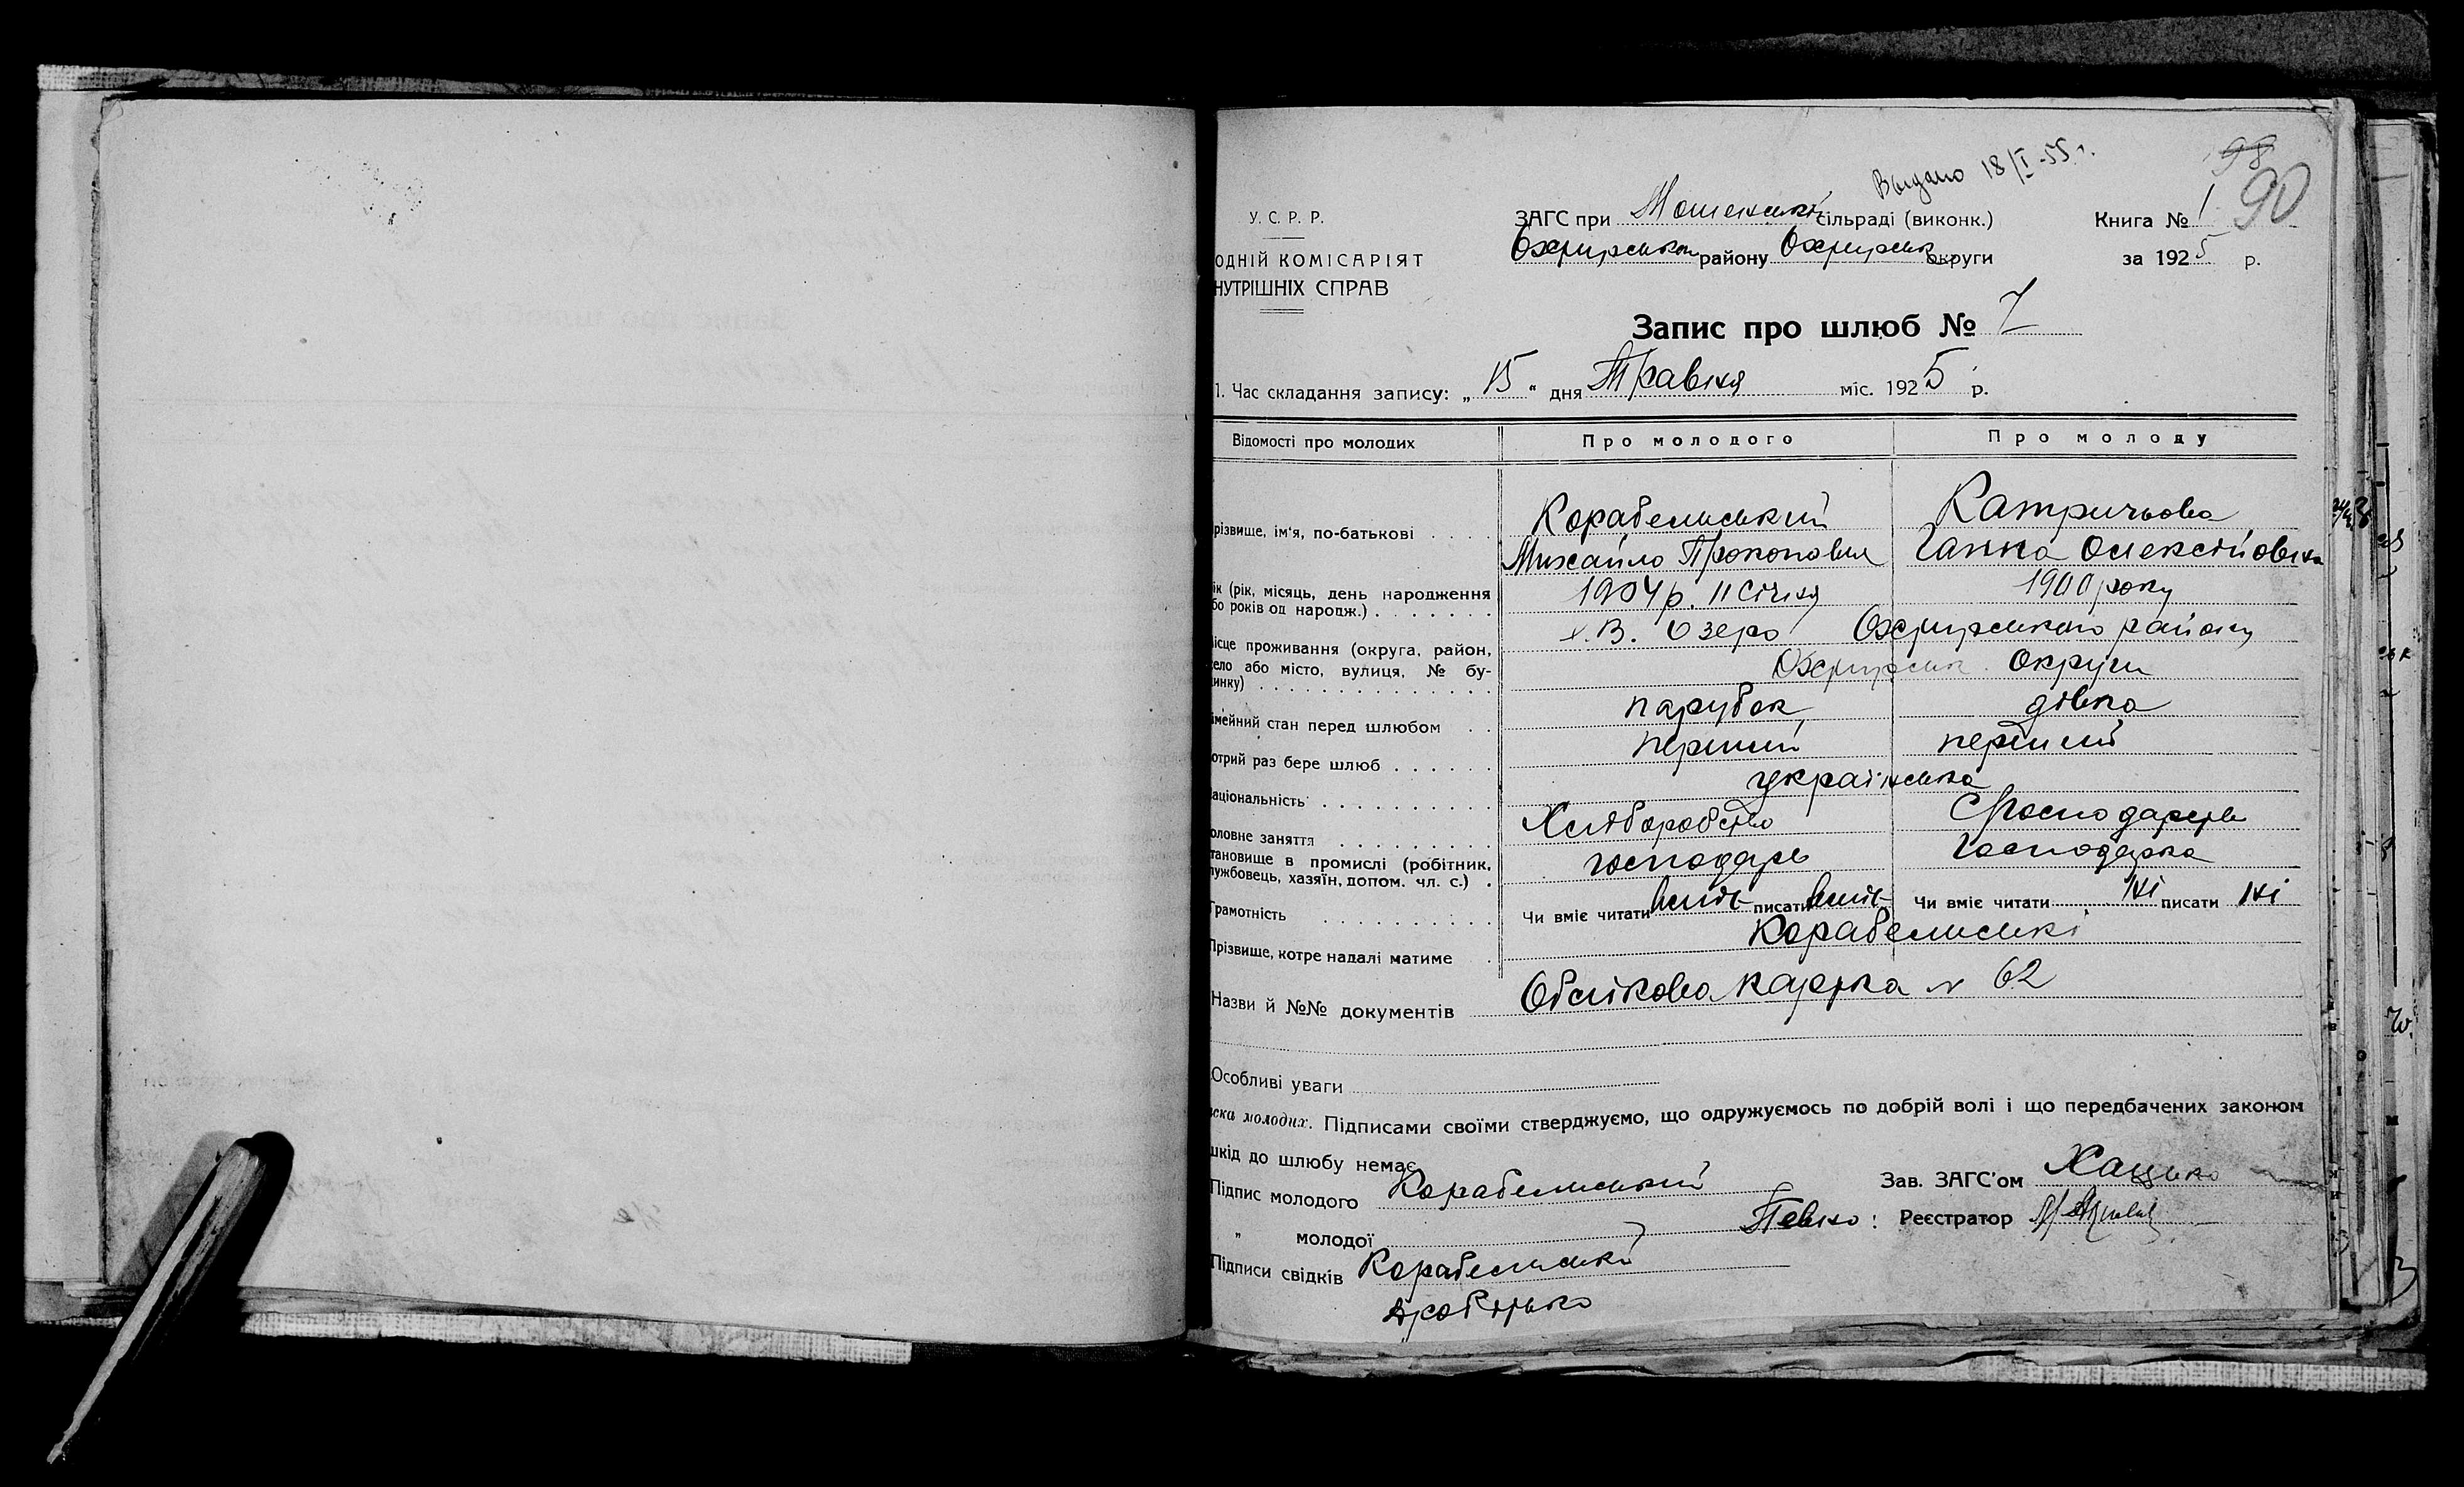 Выдано 18/I-55 г.
98
90
У. С. Р. Р.
ОДНІЙ КОМІСАРІЯТ
НУТРІШНІХ СПРАВ
ЗАГС при сільраді (виконк.)
Охтирського району Охтирськ округи
Книга № 1
за 1925 р.
Запис про шлюб № 7
1. Час складання запису: „ 15 " дня Травня міс. 1925 р.
Відомості про молодих
Про молодого
Про молоду
різвище, ім'я, по-батькові . . . .
Корабельський
Михайло Прокопович
Катричьова
Ганна Олексійовна
ік (рік, місяць, день народження
бо років од народж.) . . . . . . .
1904 р. 11 Січня
1900 року
ісце проживання (округа, район,
ело або місто, вулиця, № бу-
инку) . . . . . . . . . . . . . . .
х. В. Озеро Охтирського району
Охтирськ. Округи
імейний стан перед шлюбом . .
парубок
дівка
отрий раз бере шлюб . . . . . .
перший
перший
аціональність . . . . . . . . . . .
українська
оловне заняття . . . . . . . . . .
Хліборобство
тановище в промислі (робітник,
лужбовець, хазяїн, допом. чл. с.) .
господарь
Господарка
Грамотність . . . . . . . .
Чи вміє читати вміє писати вміє
Чи вміє читати ні писати ні
Прізвище, котре надалі матиме .
Корабельські
Назви й №№ документів Облікова картка № 62
Особливі уваги
ска молодих. Підписами своїми стверджуємо, що одружуємось по добрій волі і що передбачених законом
шкід до шлюбу немає
Підпис молодого Корабельський
Зав. ЗАГС'ом
„ молодої
Реєстратор
Підписи свідків Корабельський